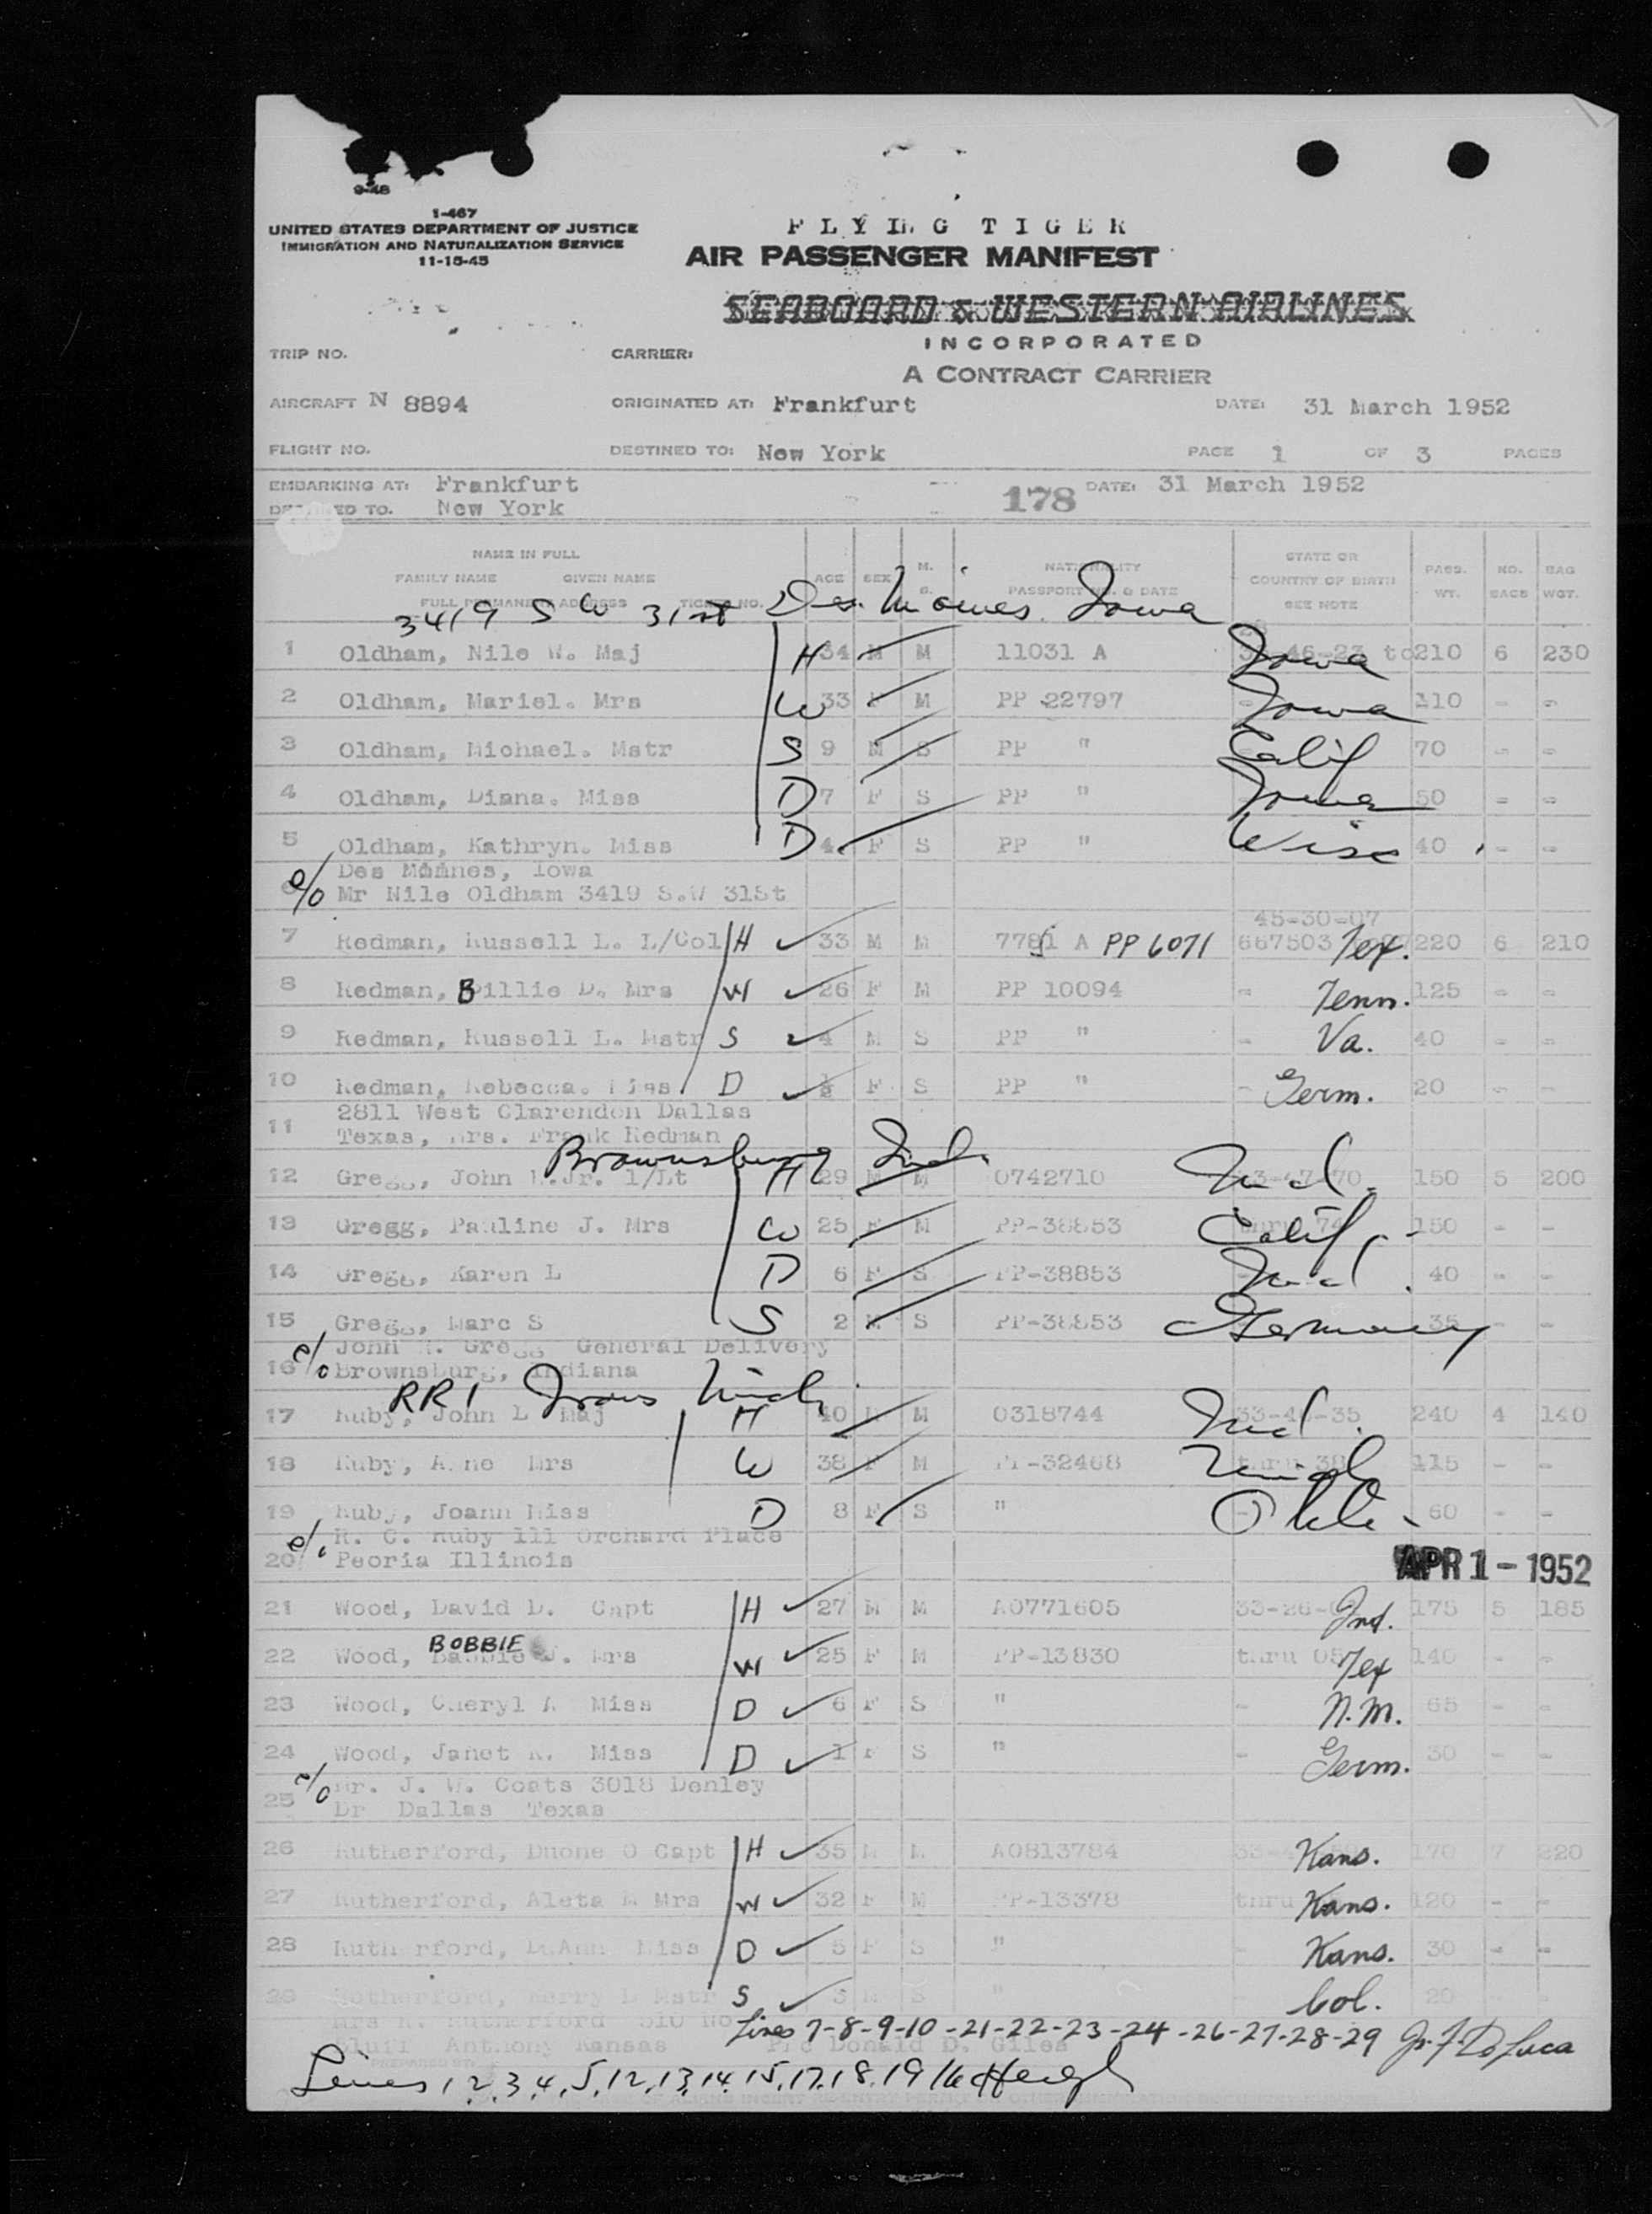 9-48
1-467
UNITED STATES DEPARTMENT OF JUSTICE
IMMIGRATION AND NATURALIZATION SERVICE
11-15-45
FLYING TIGER
AIR PASSENGER MANIFEST
SEABOARD & WESTERN AIRLINES
INCORPORATED
A CONTRACT CARRIER
TRIP NO. CARRIER:
AIRCRAFT N 8894 ORIGINATED AT: Frankfurt DATE: 31 March 1952
FLIGHT NO. DESTINED TO: New York PAGE 1 OF 3 PAGES
EMBARKING AT: Frankfurt 178 DATE: 31 March 1952
TO. New York
NAME IN FULL
FAMILY NAME GIVEN NAME AGE SEX M. S. NATIONALITY PASSPORT NO. & DATE STATE OR COUNTRY OF BIRTH SEE NOTE PASS. WT. NO. BAGS BAG WGT.
FULL PERMANENT ADDRESS TICKET NO.
3419 SW 31st Des Moines Iowa
1 Oldham, Nile W. Maj H 34 M M 11031 A Iowa 210 6 230
2 Oldham, Mariel. Mrs W 33 F M PP 22797 Iowa 110 - -
3 Oldham, Michael. Mstr S 9 M S PP " Calif 70 - -
4 Oldham, Diana. Miss D 7 F S PP " Iowa 50 - -
5 Oldham, Kathryn. Miss D 4 F S PP " Wisc 40 - -
Des Moines, Iowa
6 c/o Mr Nile Oldham 3419 S.W 31St
45-30-07
7 Redman, Russell L. L/Col H 33 M M 7781 A PP 6071 667503 Tex. 220 6 210
8 Redman, Billie D. Mrs W 26 F M PP 10094 - Tenn. 125 - -
9 Redman, Russell L. Mstr S 4 M S PP " - Va. 40 - -
10 Redman, Rebecca. Miss D ½ F S PP " - Germ. 20 - -
2811 West Clarendon Dallas
11 Texas, Mrs. Frank Redman
Brownsburg Ind.
12 Gregg, John Jr. 1/Lt H 29 M M 0742710 Ind. 150 5 200
13 Gregg, Pauline J. Mrs W 25 F M PP-38853 Calif. 150 - -
14 Gregg, Karen L D 6 F S PP-38853 Ind. 40 - -
15 Gregg, Marc S S 2 M S PP-38853 Germany 35 - -
c/o John Gregg General Delivery
16 Brownsburg, Indiana
RR1
17 Ruby, John L Maj H 40 M M 0318744 33-46-35 Ind. 240 4 140
18 Ruby, Anne Mrs W 38 F M PP-32468 thru 38 Mich 115 - -
19 Ruby, Joann Miss D 8 F S " Okla. 60 - -
c/o R. C. Ruby 111 Orchard Place
20 Peoria Illinois
APR 1 - 1952
21 Wood, David D. Capt H 27 M M AO771605 33-26- Ind. 175 5 185
BOBBIE
22 Wood, J. Mrs W 25 F M PP-13830 thru Tex 140 - -
23 Wood, Cheryl A Miss D 6 F S " - N.M. 65 - -
24 Wood, Janet K. Miss D 1 F S " - Germ. 30 - -
c/o Mr. J. W. Coats 3018 Denley
25 Dr Dallas Texas
26 Rutherford, Duone O Capt H 35 M M AO813784 Kans. 170 7 220
27 Rutherford, Aleta Mrs W 32 F M PP-13378 thru Kans. 120 - -
28 Rutherford, DeAnn Miss D 5 F S " - Kans. 30 - -
29 Rotherford, Mstr S 3 M S " Col. 20 - -
Mrs Rutherford 510 No
Bluff Anthony Kansas Pfc Donald D. Giles
Lines 7-8-9-10-21-22-23-24-26-27-28-29
Lines 1,2,3,4,5,12,13,14,15,17,18,19